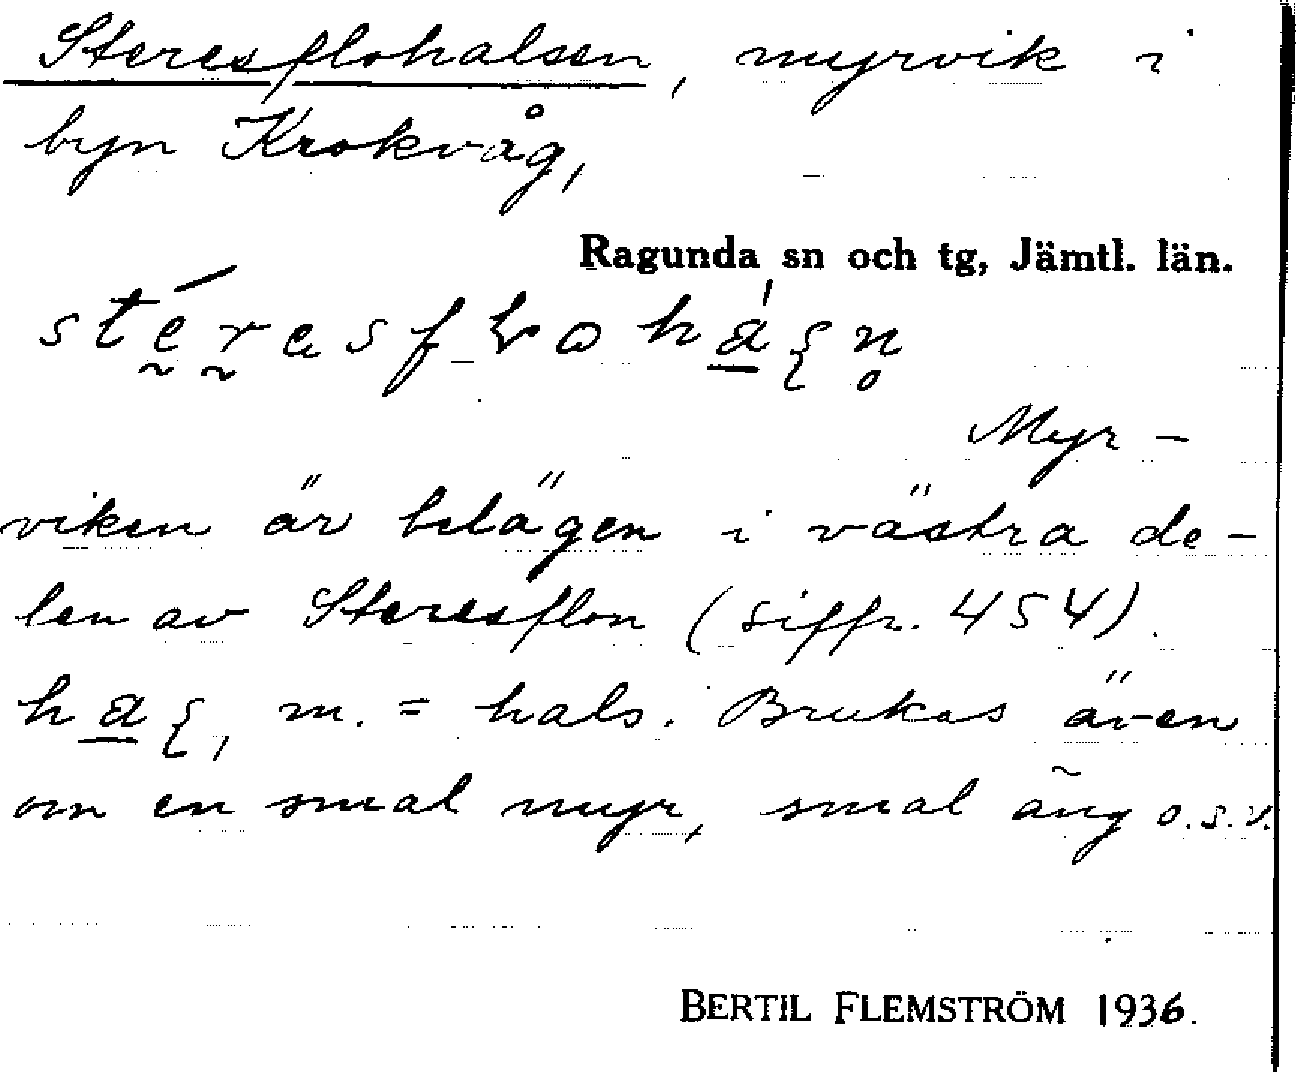 Steresflohalsen, myrvik i
byn Krokvåg,
Ragunda sn och tg, Jämtl. län.
Myr-
viken är belägen i västra de-
len av Steresflon (siffr. 454)
m. = hals. Brukas även
om en smal myr, smal äng o.s.v.
BERTIL FLEMSTRÖM 1936.